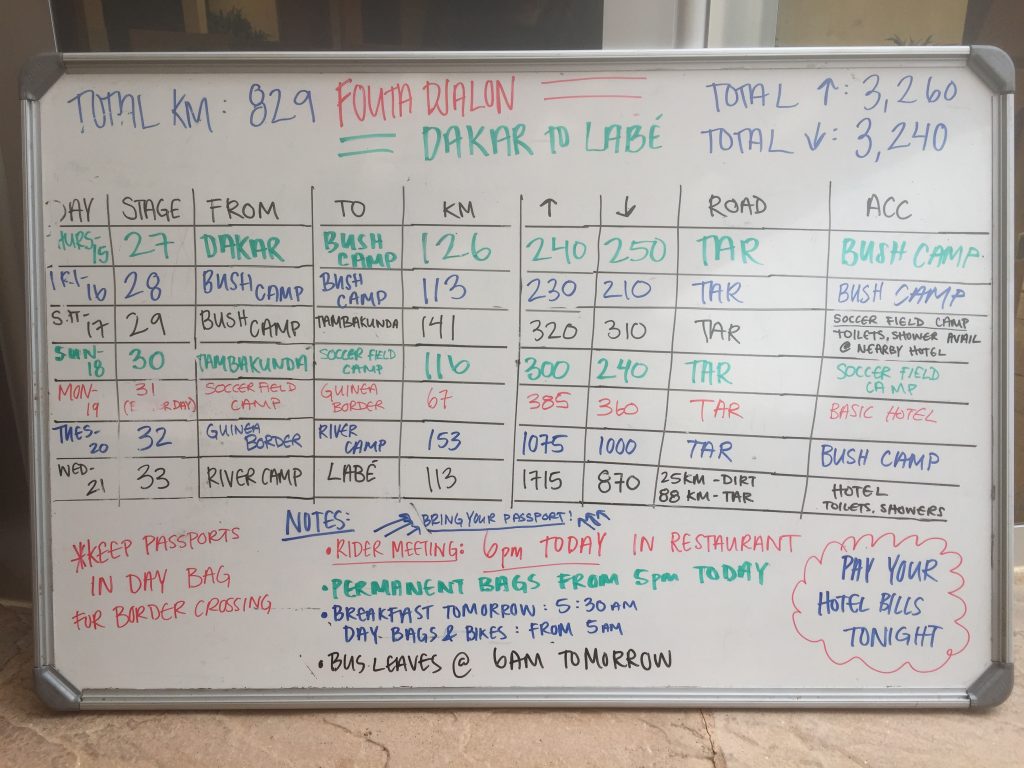 TOTAL KM: 829 FOUTA DJALON TOTAL ↑: 3,260
DAKAR TO LABÉ TOTAL ↓: 3,240
DAY STAGE FROM TO KM ↑ ↓ ROAD ACC
THURS-15 27 DAKAR BUSH CAMP 126 240 250 TAR BUSH CAMP
FRI-16 28 BUSH CAMP BUSH CAMP 113 230 210 TAR BUSH CAMP
SAT-17 29 BUSH CAMP TAMBAKUNDA 141 320 310 TAR SOCCER FIELD CAMP TOILETS, SHOWER AVAIL @ NEARBY HOTEL
SUN-18 30 TAMBAKUNDA SOCCER FIELD CAMP 116 300 240 TAR SOCCER FIELD CAMP
MON-19 31 SOCCER FIELD CAMP GUINEA BORDER 67 385 360 TAR BASIC HOTEL
TUES-20 32 GUINEA BORDER RIVER CAMP 153 1075 1000 TAR BUSH CAMP
WED-21 33 RIVER CAMP LABÉ 113 1715 870 25KM-DIRT 88 KM-TAR HOTEL TOILETS, SHOWERS
*KEEP PASSPORTS
IN DAY BAG
FOR BORDER CROSSING
NOTES: BRING YOUR PASSPORT!
•RIDER MEETING: 6pm TODAY IN RESTAURANT
•PERMANENT BAGS FROM 5pm TODAY
•BREAKFAST TOMORROW: 5:30AM
DAY BAGS & BIKES: FROM 5AM
•BUS LEAVES @ 6AM TOMORROW
PAY YOUR
HOTEL BILLS
TONIGHT